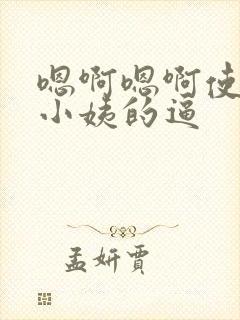 嗯啊嗯啊使
小姨的逼
孟妍賈